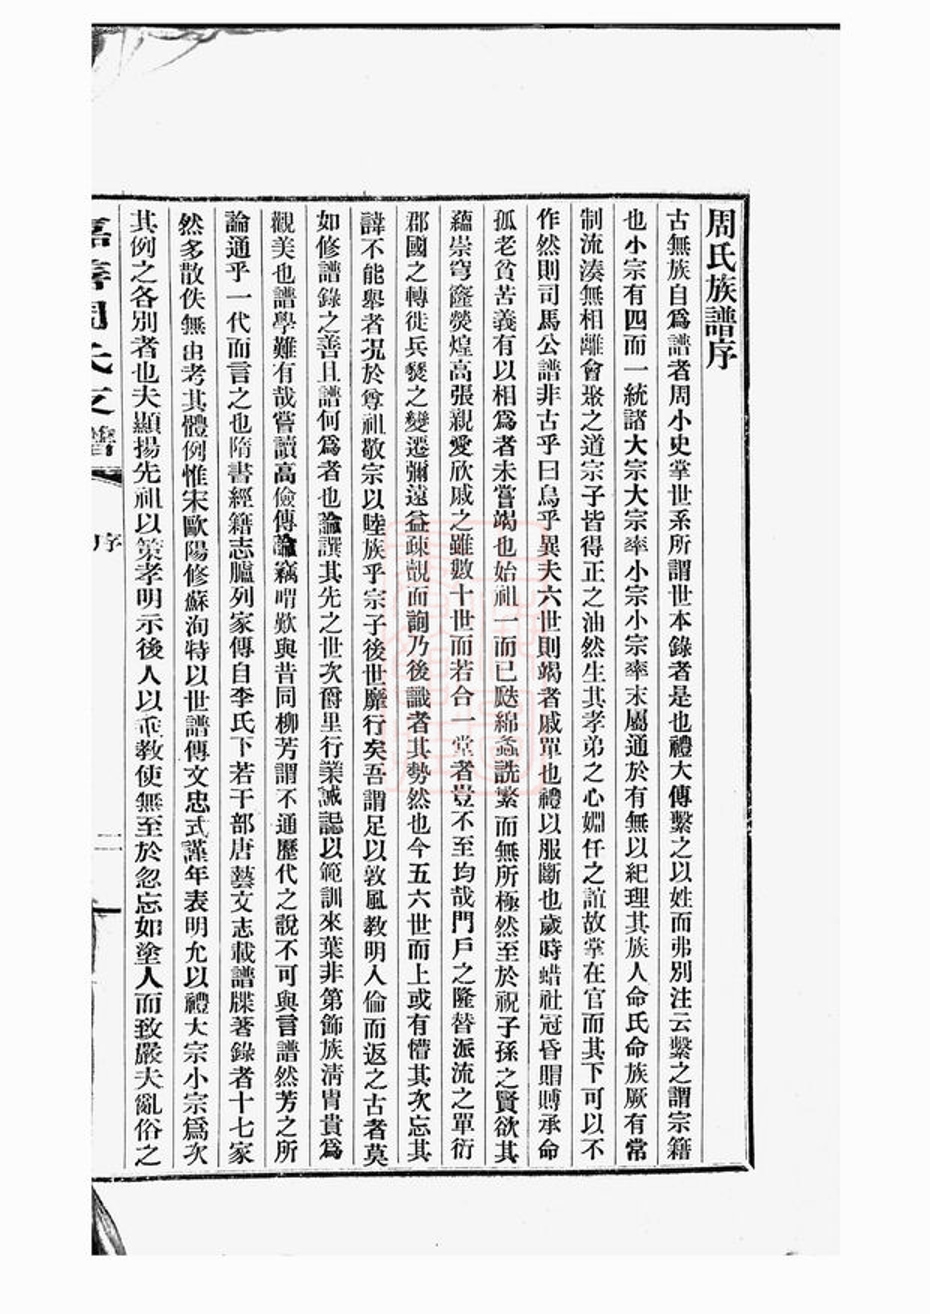 周氏族譜序
古無族自爲譜者周小史掌世系所謂世本錄者是也禮大傳繫之以姓而弗別注云繫之謂宗籍
也小宗有四而一統諸大宗大宗率小宗小宗率末屬通於有無以紀理其族人命氏命族厥有常
制流湊無相離會聚之道宗子皆得正之油然生其孝弟之心婣仟之誼故掌在官而其下可以不
作然則司馬公譜非古乎曰烏乎異夫六世則竭者戚單也禮以服斷也歲時蜡社冠昏賵賻承命
孤老貧苦義有以相爲者未嘗竭也始祖一而已瓞綿螽詵繁而無所極然至於祝子孫之賢欲其
蘊崇穹窿熒煌高張親愛欣戚之雖數十世而若合一堂者豈不至均哉門戶之隆替派流之單衍
郡國之轉徙兵燹之變遷彌遠益疎覩面詢乃後識者其勢然也今五六世而上或有懵其次忘其
諱不能舉者況於尊祖敬宗以睦族乎宗子後世靡行矣吾謂足以敦風教明人倫而返之古者莫
如修譜錄之善且譜何爲者也論譔其先之世次爵里行業誡諰以範訓來葉非第飾族淸胄貴爲
觀美也譜學難有哉嘗讀高儉傳論竊喟歎與昔同柳芳謂不通歷代之說不可與言譜然芳之所
論通乎一代而言之也隋書經籍志臚列家傳自李氏下若干部唐藝文志載譜牒著錄者十七家
然多散佚無由考其體例惟宋歐陽修蘇洵特以世譜傳文忠式謹年表明允以禮大宗小宗爲次
其例之各別者也夫顯揚先祖以策孝明示後人以垂教使無至於忽忘如塗人而致嚴夫亂俗之
嘉善周氏支譜
序
二